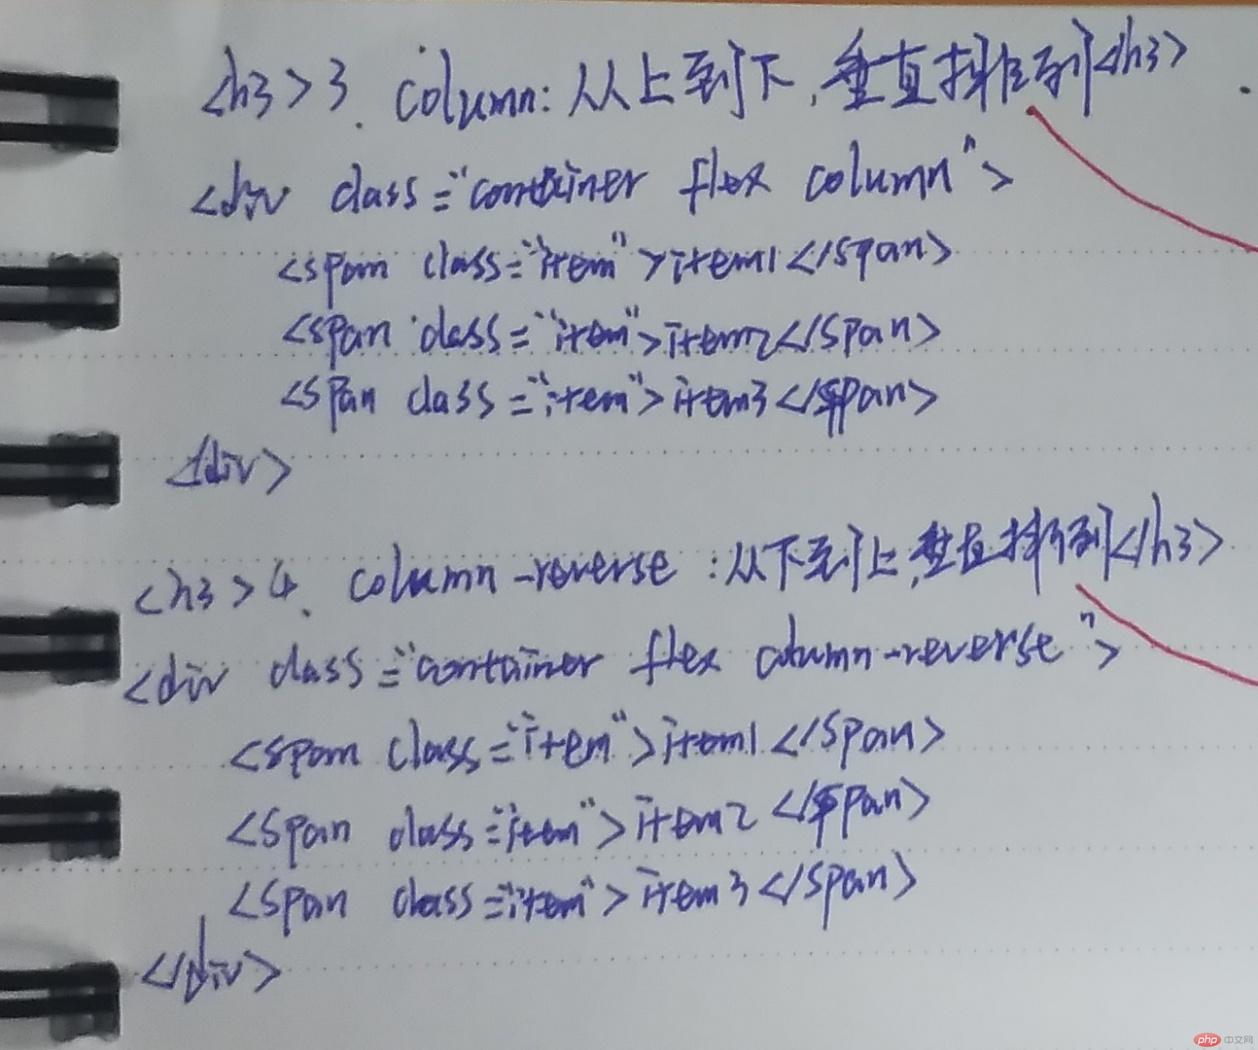 <h3>3. column:从上到下,垂直排列<h3>
<div class="container flex column">
<span class="item">item1</span>
<span class="item">item2</span>
<span class="item">item3</span>
</div>
<h3>4. column-reverse:从下到上,垂直排列</h3>
<div class="container flex column-reverse">
<span class="item">item1</span>
<span class="item">item2</span>
<span class="item">item3</span>
</div>
php 中文网